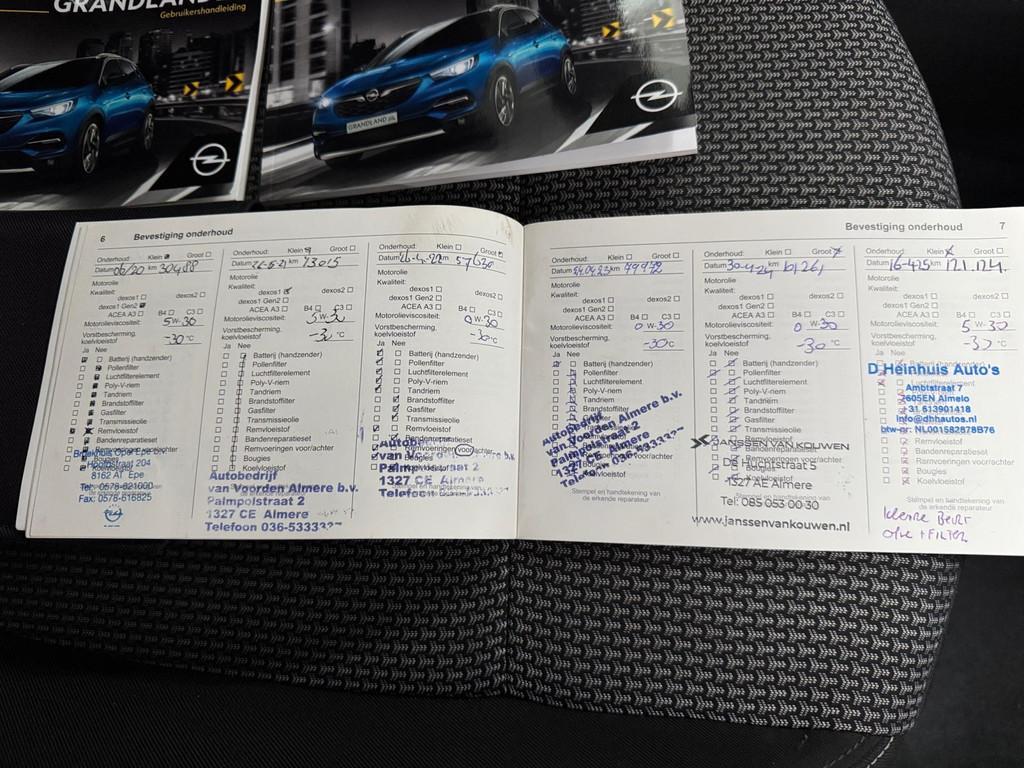 GRANDLAND
Gebruikershandleiding
GRANDLAND
6 Bevestiging onderhoud
Onderhoud: Klein Groot
Datum 06/20 km 30488
Motorolie
Kwaliteit:
dexos1 dexos2
dexos1 Gen2
ACEA A3 B4 C3
Motorolieviscositeit: 5W-30
Vorstbescherming,
koelvloeistof -30 °C
Ja Nee
Batterij (handzender)
Pollenfilter
Luchtfilterelement
Poly-V-riem
Tandriem
Brandstoffilter
Gasfilter
Transmissieolie
Remvloeistof
Bandenreparatieset
Bougies
Koelvloeistof
Hoofdstraat 204
8162 AT Epe
Tel: 0578-621600
Fax: 0578-616825
Onderhoud: Klein Groot
Datum km 73015
Motorolie
Kwaliteit:
dexos1 dexos2
dexos1 Gen2
ACEA A3 B4 C3
Motorolieviscositeit: 5W-30
Vorstbescherming,
koelvloeistof -30 °C
Ja Nee
Batterij (handzender)
Pollenfilter
Luchtfilterelement
Poly-V-riem
Tandriem
Brandstoffilter
Gasfilter
Transmissieolie
Remvloeistof
Bandenreparatieset
Remvoeringen voor/achter
Bougies
Koelvloeistof
Autobedrijf
van Voorden Almere b.v.
Palmpolstraat 2
1327 CE Almere
Telefoon 036-5333
Onderhoud: Klein Groot
Datum km
Motorolie
Kwaliteit:
dexos1 dexos2
dexos1 Gen2
ACEA A3 B4 C3
Motorolieviscositeit: 0 W-30
Vorstbescherming,
koelvloeistof -30°C
Ja Nee
Batterij (handzender)
Pollenfilter
Luchtfilterelement
Poly-V-riem
Tandriem
Brandstoffilter
Gasfilter
Transmissieolie
Remvloeistof
Bandenreparatieset
1327 CE Almere
Telefoon
Bevestiging onderhoud 7
Onderhoud: Klein Groot
Datum 24.04.23 km
Motorolie
Kwaliteit:
dexos1 dexos2
dexos1 Gen2
ACEA A3 B4 C3
Motorolieviscositeit: 0 W-30
Vorstbescherming,
koelvloeistof -30°C
Ja Nee
Batterij (handzender)
Pollenfilter
Luchtfilterelement
Poly-V-riem
Tandriem
Brandstoffilter
Autobedrijf
van Voorden Almere b.v.
Palmpolstraat 2
1327 CE Almere
Telefoon 036-5333
Stempel en handtekening van
de erkende reparateur
Onderhoud: Klein Groot
Datum 30-4-24 km
Motorolie
Kwaliteit:
dexos1 dexos2
dexos1 Gen2
ACEA A3 B4 C3
Motorolieviscositeit: 0 W-30
Vorstbescherming,
koelvloeistof -30 °C
Ja Nee
Batterij (handzender)
Pollenfilter
Luchtfilterelement
Poly-V-riem
Tandriem
Brandstoffilter
Gasfilter
Transmissieolie
Remvloeistof
JANSSEN VAN KOUWEN
De Huchtstraat 5
1327 AE Almere
Tel: 085 053 00 30
www.janssenvankouwen.nl
Onderhoud: Klein Groot
Datum 16-4-25 km 121.124
Motorolie
Kwaliteit:
dexos1 dexos2
dexos1 Gen2
ACEA A3 B4 C3
Motorolieviscositeit: 5 W-30
Vorstbescherming,
koelvloeistof °C
Ja Nee
D Heinhuis Auto's
Ambtstraat 7
7605EN Almelo
+31 613901418
info@dhhautos.nl
btw-nr: NL001582878B76
Remvloeistof
Bandenreparatieset
Remvoeringen voor/achter
Bougies
Koelvloeistof
Stempel en handtekening van
de erkende reparateur
kleine Beurt
olie + Filter